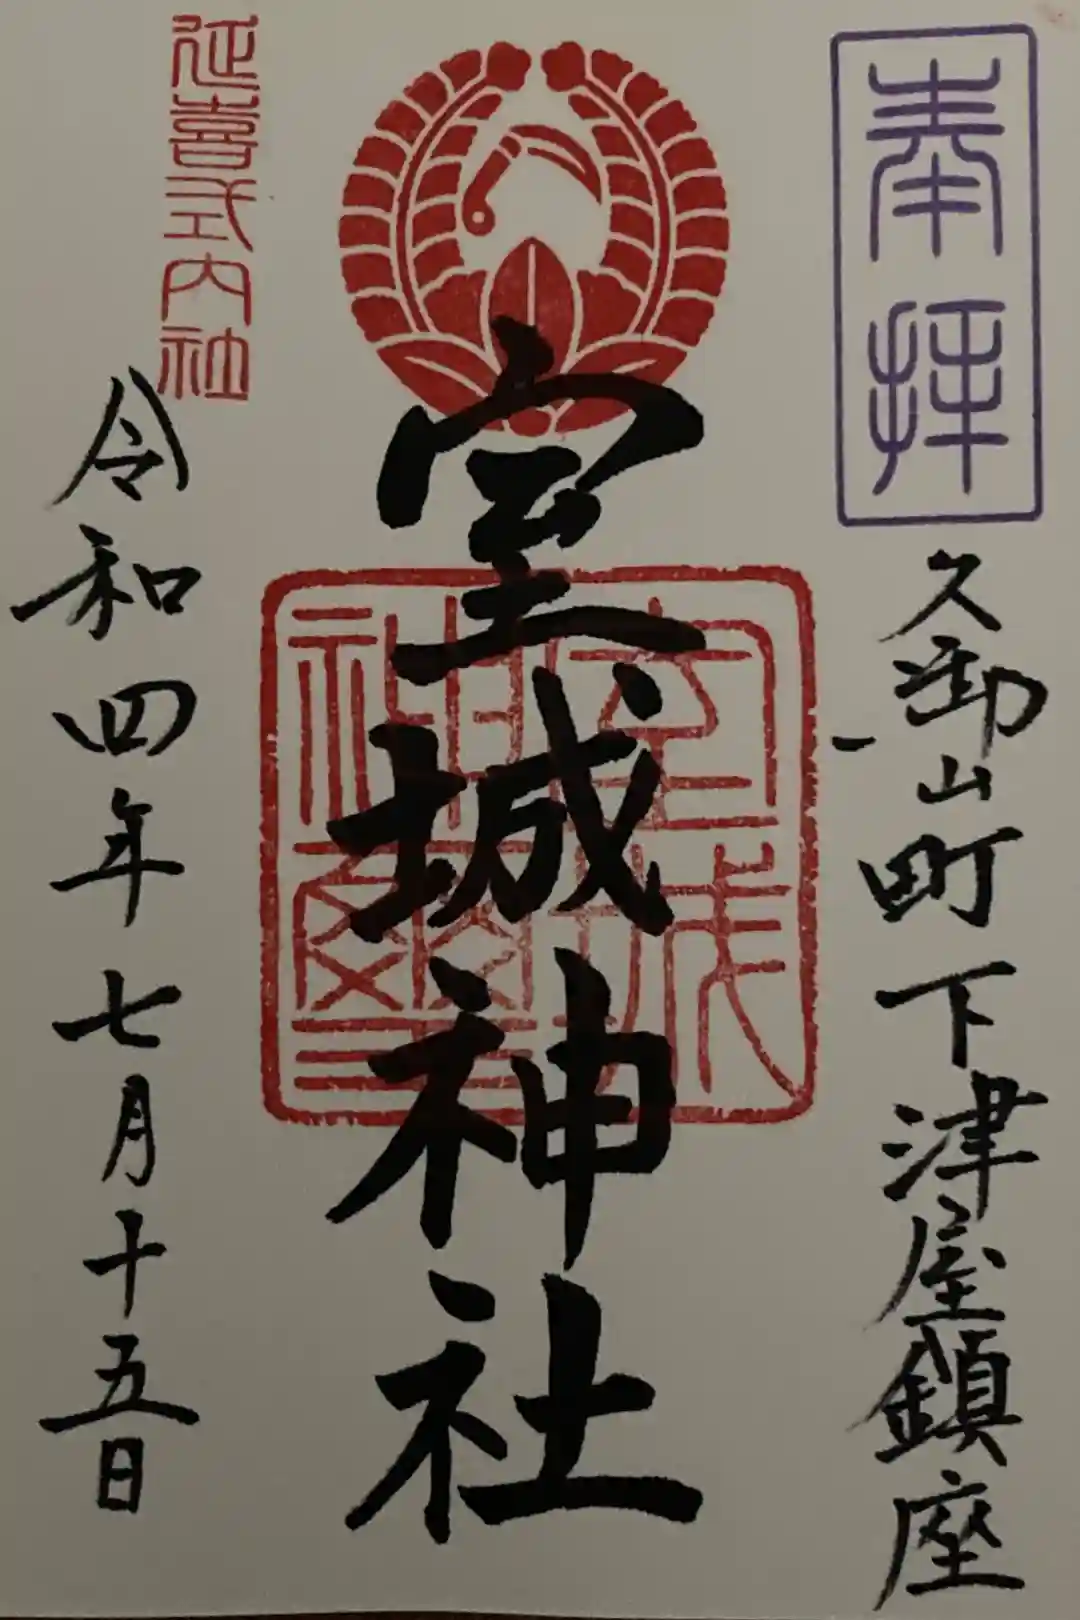 奉拝
久御山町下津屋鎮座
室城神社
室城神社璽
延喜式内社
令和四年七月十五日